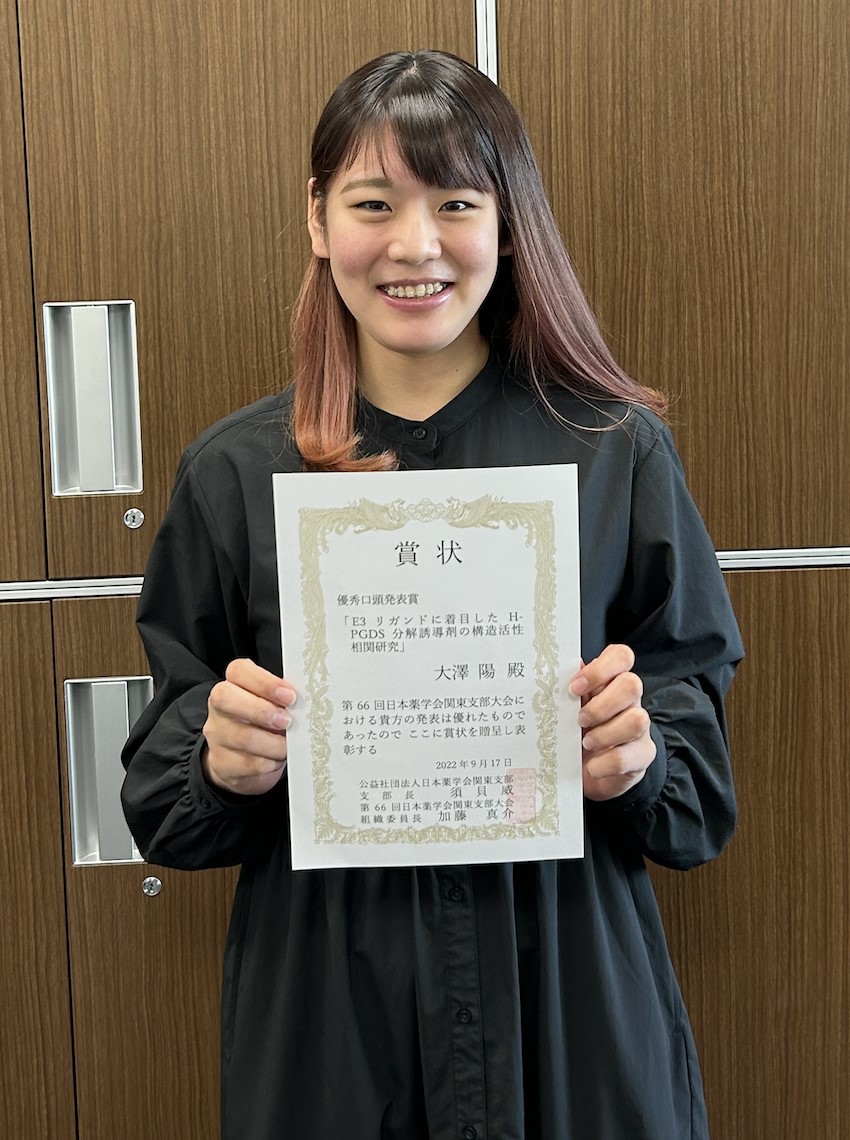 賞状
優秀口頭発表賞
「E3 リガンドに着目した H-
PGDS 分解誘導剤の構造活性
相関研究」
大澤 陽 殿
第 66 回日本薬学会関東支部大会に
おける貴方の発表は優れたもので
あったので ここに賞状を贈呈し表
彰する
2022 年 9 月 17 日
公益社団法人日本薬学会関東支部
支部長 須貝 威
第 66 回日本薬学会関東支部大会
組織委員長 加藤 真介